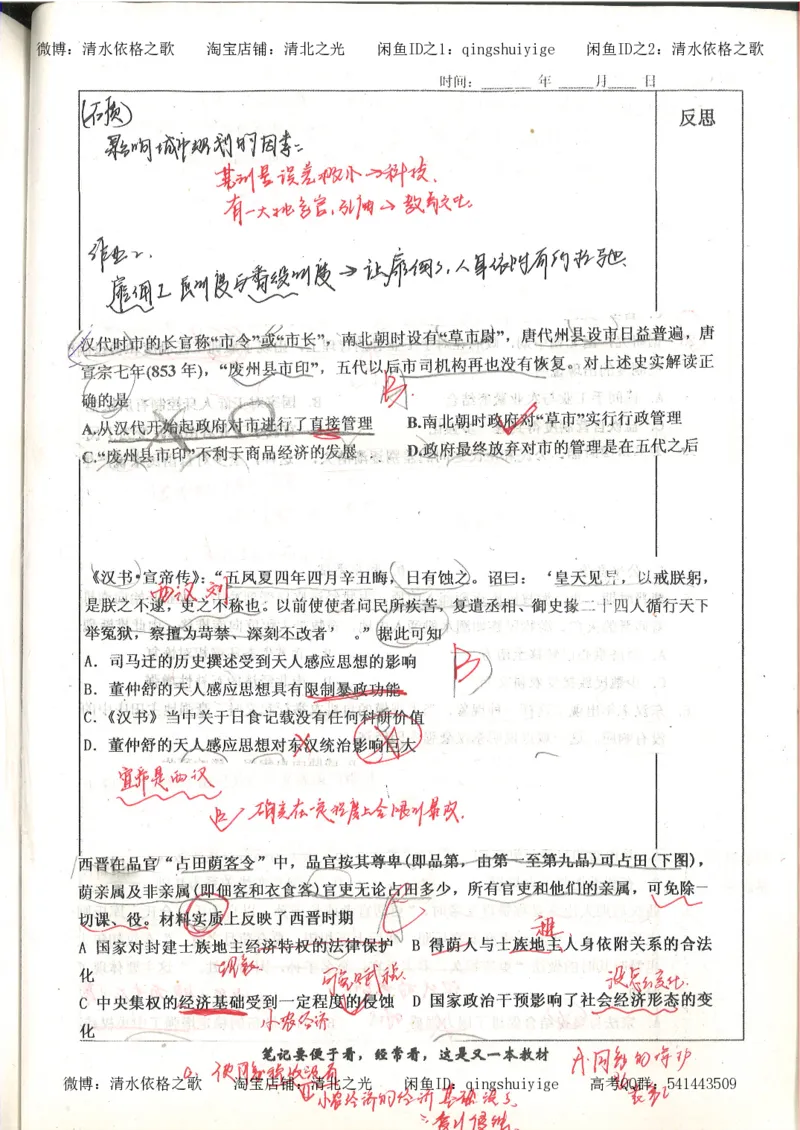 微博：清水依格之歌 淘宝店铺：清北之光 闲鱼ID之1：qingshuiyige 闲鱼ID之2：清水依格之歌
时间：______年______月______日
反思
影响城市规划的因素：
误差极小→科技.
作业2.
雇佣工
汉代时市的长官称“市令”或“市长”，南北朝时设有“草市尉”，唐代州县设市日益普遍，唐
宣宗七年(853 年)，“废州县市印”，五代以后市司机构再也没有恢复。对上述史实解读正
确的是
B.
A.从汉代开始起政府对市进行了直接管理 B.南北朝时政府对“草市”实行行政管理
C.“废州县市印”不利于商品经济的发展 D.政府最终放弃对市的管理是在五代之后
《汉书•宣帝传》：“五凤夏四年四月辛丑晦，日有蚀之。诏曰：‘皇天见异，以戒朕躬，
西汉
是朕之不逮，吏之不称也。以前使使者问民所疾苦，复遣丞相、御史掾二十四人循行天下
举冤狱，察擅为苛禁、深刻不改者’。”据此可知
A．司马迁的历史撰述受到天人感应思想的影响
B
B．董仲舒的天人感应思想具有限制暴政功能
C．《汉书》当中关于日食记载没有任何科研价值
D．董仲舒的天人感应思想对东汉统治影响巨大
宣帝是西汉
确实在一定程度上会限制暴政.
西晋在品官“占田荫客令”中，品官按其尊卑(即品第，由第一至第九品)可占田(下图)，
荫亲属及非亲属(即佃客和衣食客)官吏无论占田多少，所有官吏和他们的亲属，可免除一
切课、役。材料实质上反映了西晋时期
C
A 国家对封建士族地主经济特权的法律保护 B 得荫人与士族地主人身依附关系的合法
化
现象
C 中央集权的经济基础受到一定程度的侵蚀 D 国家政治干预影响了社会经济形态的变
化
小农经济
笔记要便于看，经常看，这是又一本教材
微博：清水依格之歌 淘宝店铺：清北之光 闲鱼ID：qingshuiyige 高考QQ群：541443509